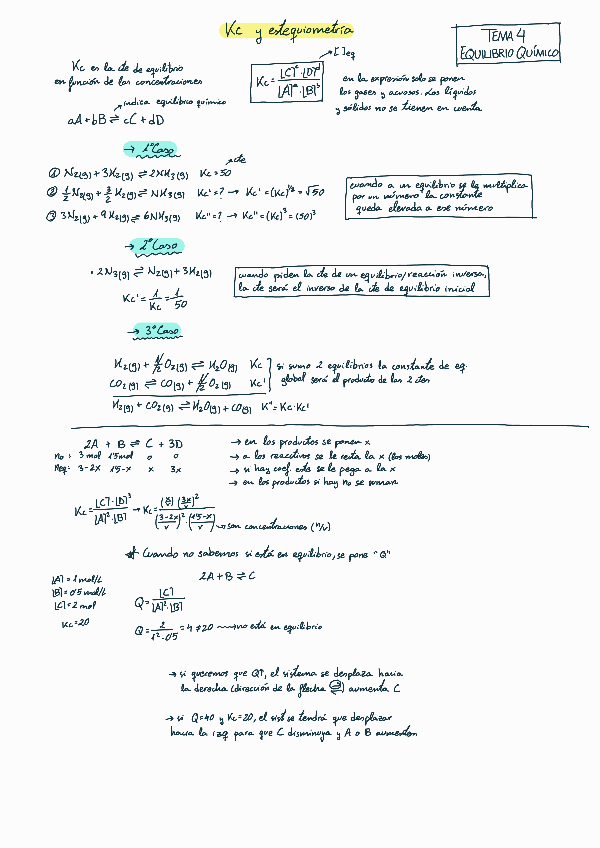 Kc y estequiometría
TEMA 4
EQUILIBRIO QUÍMICO
Kc es la cte de equilibrio
en función de las concentraciones
indica equilibrio químico
aA+bB ⇌ cC + dD
Kc = [C]^c·[D]^d / [A]^a·[B]^b
[ ]eq
en la expresión solo se ponen
los gases y acuosos. Los líquidos
y sólidos no se tienen en cuenta
→ 1º Caso
① N2(g) + 3H2(g) ⇌ 2NH3(g) Kc = 50
cte
② 1/2 N2(g) + 3/2 H2(g) ⇌ NH3(g) Kc' = ? → Kc' = (Kc)^1/2 = √50
③ 3N2(g) + 9H2(g) ⇌ 6NH3(g) Kc'' = ? → Kc'' = (Kc)^3 = (50)^3
cuando a un equilibrio se la multiplica
por un número la constante
queda elevada a ese número
→ 2º Caso
· 2N3(g) ⇌ N2(g) + 3H2(g)
Kc' = 1/Kc = 1/50
cuando piden la cte de un equilibrio/reacción inversa,
la cte será el inverso de la cte de equilibrio inicial
→ 3º Caso
H2(g) + 1/2 O2(g) ⇌ H2O(g) Kc
CO2(g) ⇌ CO(g) + 1/2 O2(g) Kc'
si sumo 2 equilibrios la constante de eq.
global será el producto de las 2 ctes
H2(g) + CO2(g) ⇌ H2O(g) + CO(g) K'' = Kc·Kc'
2A + B ⇌ C + 3D
no: 3 mol 1'5 mol 0 0
neq: 3-2x 1'5-x x 3x
→ en los productos se ponen x
→ a los reactivos se le resta la x (los moles)
→ si hay coef. este se le pega a la x
→ en los productos si hay no se suman
Kc = [C]·[D]^3 / [A]^2·[B] → Kc = (x/v)·(3x/v)^2 / (3-2x/v)^2·(1'5-x/v)
→ son concentraciones (n/v)
* Cuando no sabemos si está en equilibrio, se pone "Q"
2A + B ⇌ C
[A] = 1 mol/L
[B] = 0'5 mol/L
[C] = 2 mol
Kc = 20
Q = [C] / [A]^2·[B]
Q = 2 / 1^2·0'5 = 4 ≠ 20 → no está en equilibrio
→ si queremos que Q↑, el sistema se desplaza hacia
la derecha (dirección de la flecha ⇌) aumenta C
→ si Q = 40 y Kc = 20, el sist se tendrá que desplazar
hacia la izq para que C disminuya y A o B aumenten